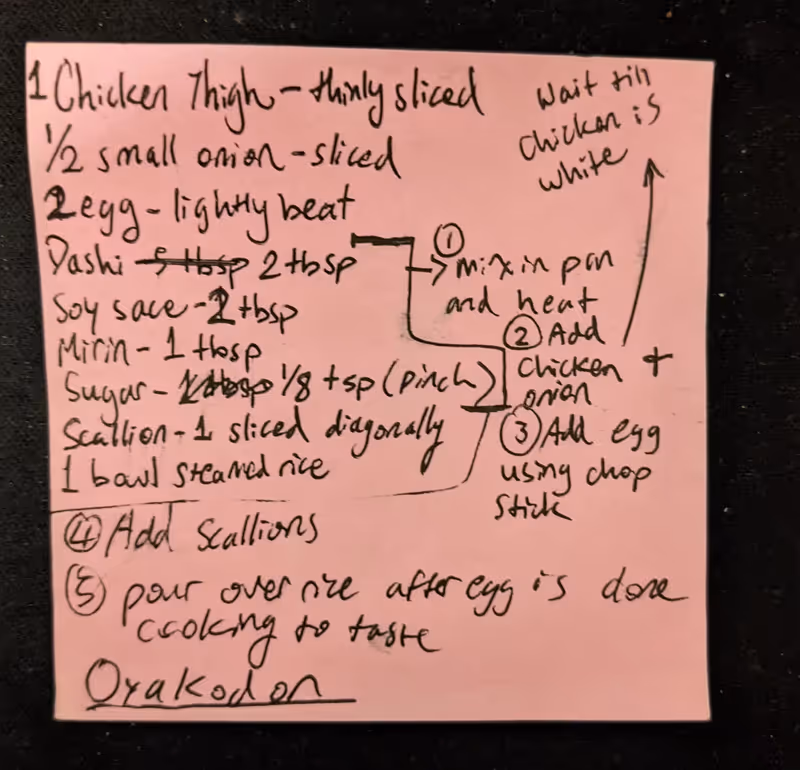 1 Chicken Thigh - thinly sliced
1/2 small onion - sliced
2 egg - lightly beat
Dashi 5 tbsp 2 tbsp
Soy sace - 2 tbsp
Mirin - 1 tbsp
Sugar - 1 tbsp 1/8 tsp (pinch)
Scallion - 1 sliced diagonally
1 bowl steamed rice
① mix in pan
and heat
② Add
chicken +
onion
Wait till
chicken is
white
③ Add egg
using chop
stick
④ Add Scallions
⑤ pour over rice after egg is done
cooking to taste
Oyakodon